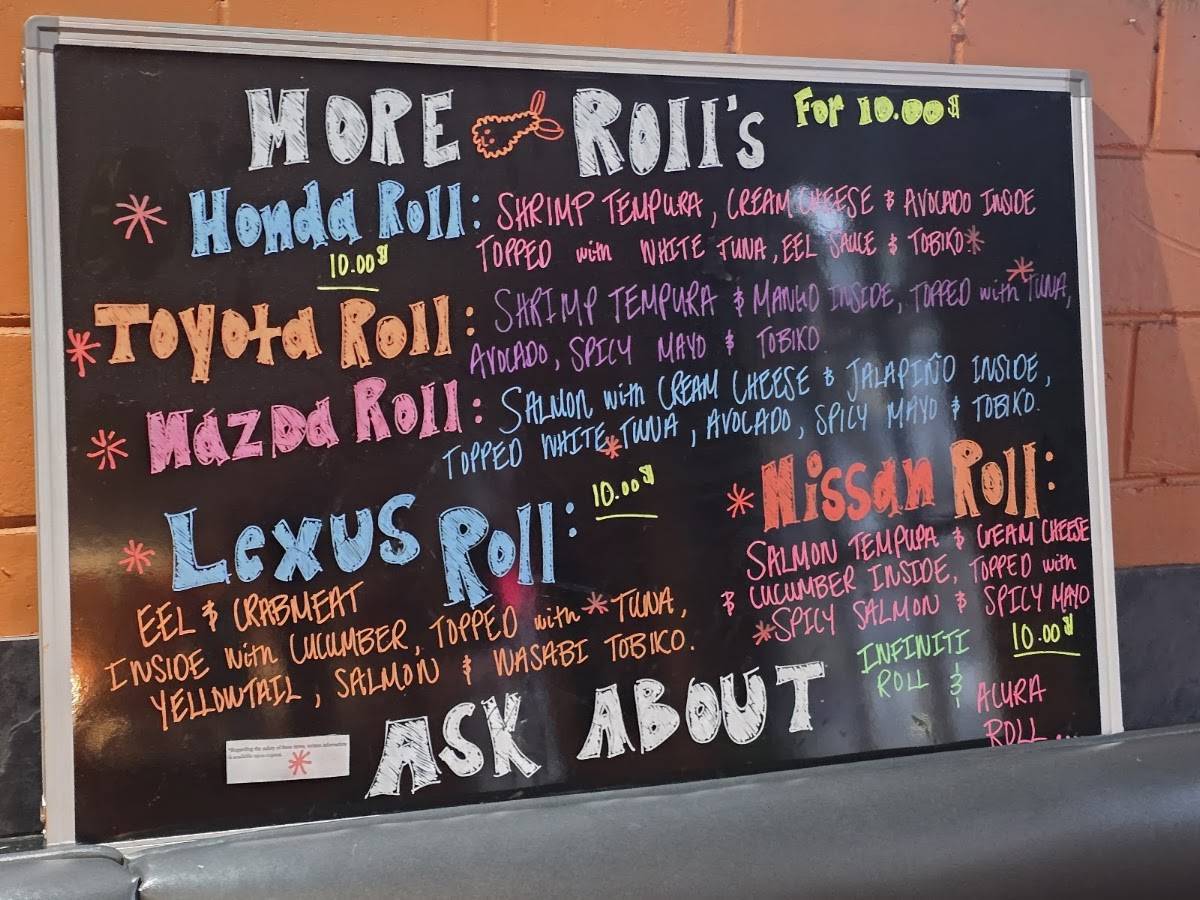 MORE ROLL'S FOR 10.00$
* Honda Roll: SHRIMP TEMPURA, CREAM CHEESE & AVOCADO INSIDE
10.00$
TOPPED with WHITE TUNA, EEL SAUCE & TOBIKO*
* Toyota Roll: SHRIMP TEMPURA & MANGO INSIDE, TOPPED with *TUNA,
AVOCADO, SPICY MAYO & TOBIKO
* Mazda Roll: SALMON with CREAM CHEESE & JALAPIÑO INSIDE,
TOPPED WHITE *TUNA, AVOCADO, SPICY MAYO & TOBIKO.
* Lexus Roll: 10.00$
EEL & CRABMEAT
INSIDE with CUCUMBER, TOPPED with *TUNA,
YELLOWTAIL, SALMON & WASABI TOBIKO.
* Nissan Roll:
SALMON TEMPURA & CREAM CHEESE
& CUCUMBER INSIDE, TOPPED with
*SPICY SALMON & SPICY MAYO
10.00$
ASK ABOUT
INFINITI
ROLL &
ACURA
ROLL...
*Regarding the safety of these items, written information
is available upon request.
*